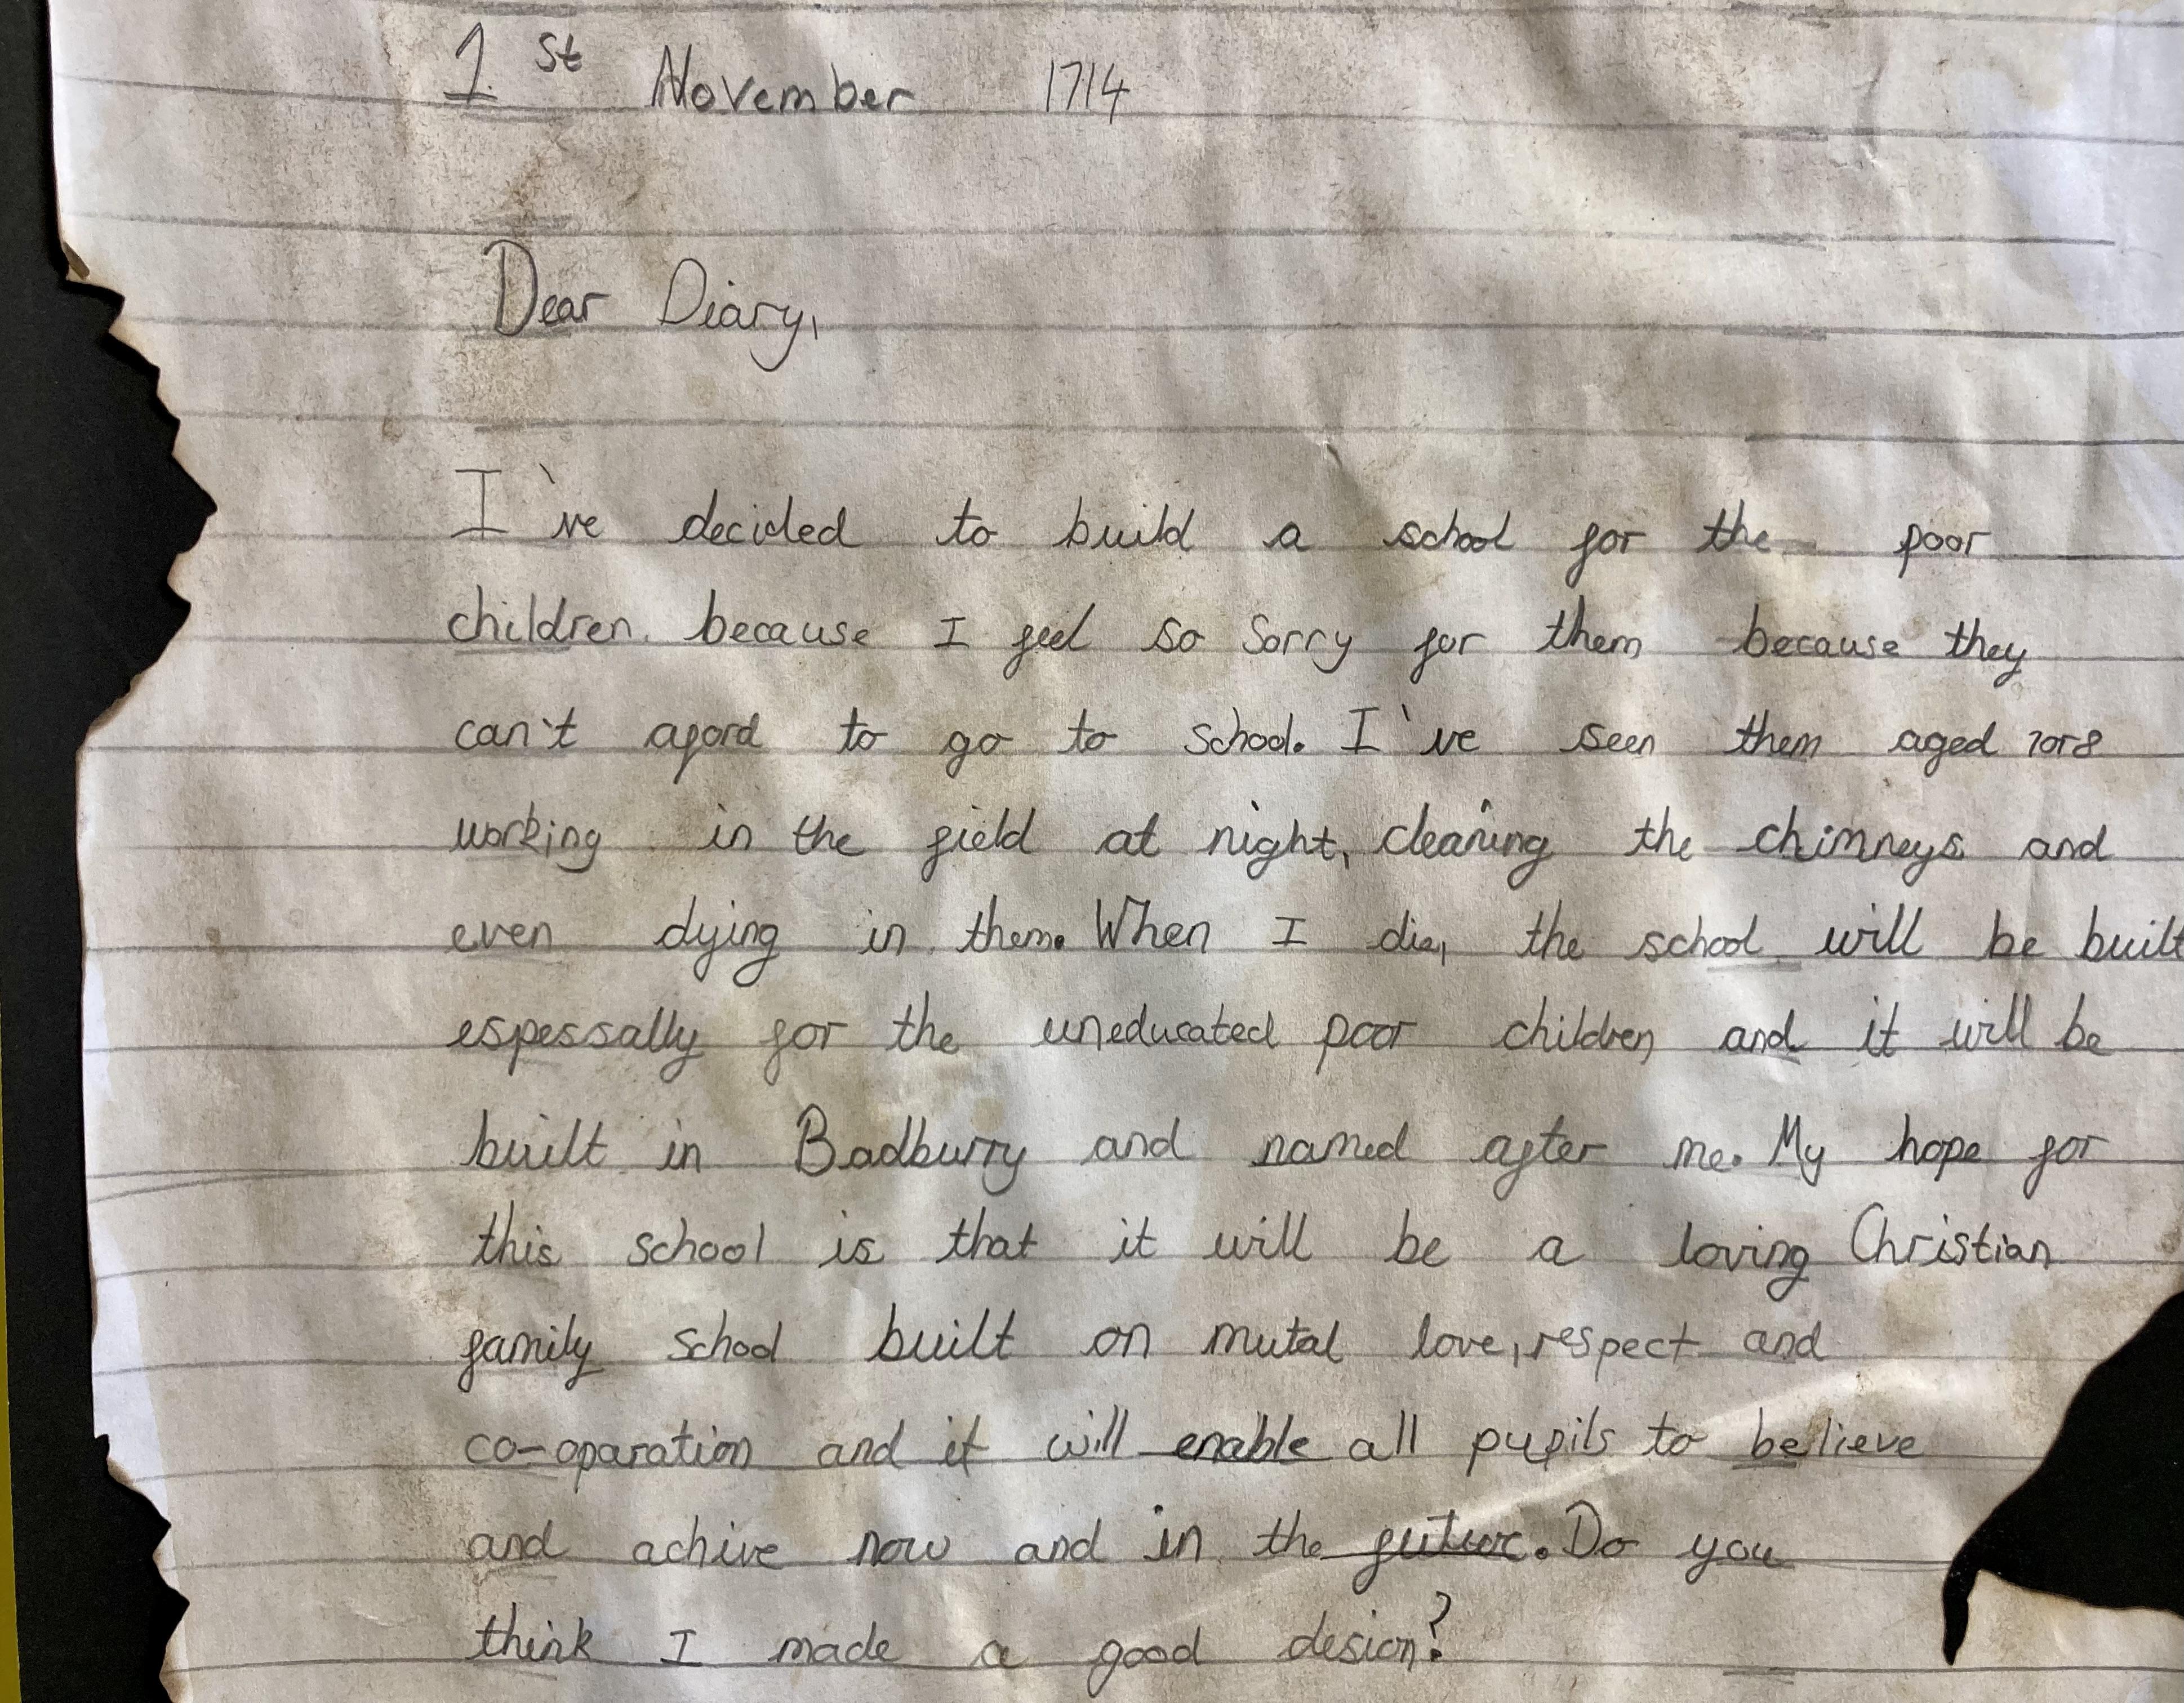 1st November 1714
Dear Diary,
I've decided to build a school for the poor
children. because I feel so sorry for them because they
can't aford to go to school. I've seen them aged 7or8
working in the field at night, cleaning the chimneys and
even dying in them. When I die, the school will be built
espessally for the uneducated poor children and it will be
built in Badburry and named after me. My hope for
this school is that it will be a loving Christian
family school built on mutal love, respect and
co-oparation and it will enable all pupils to believe
and achive now and in the future. Do you
think I made a good desion?